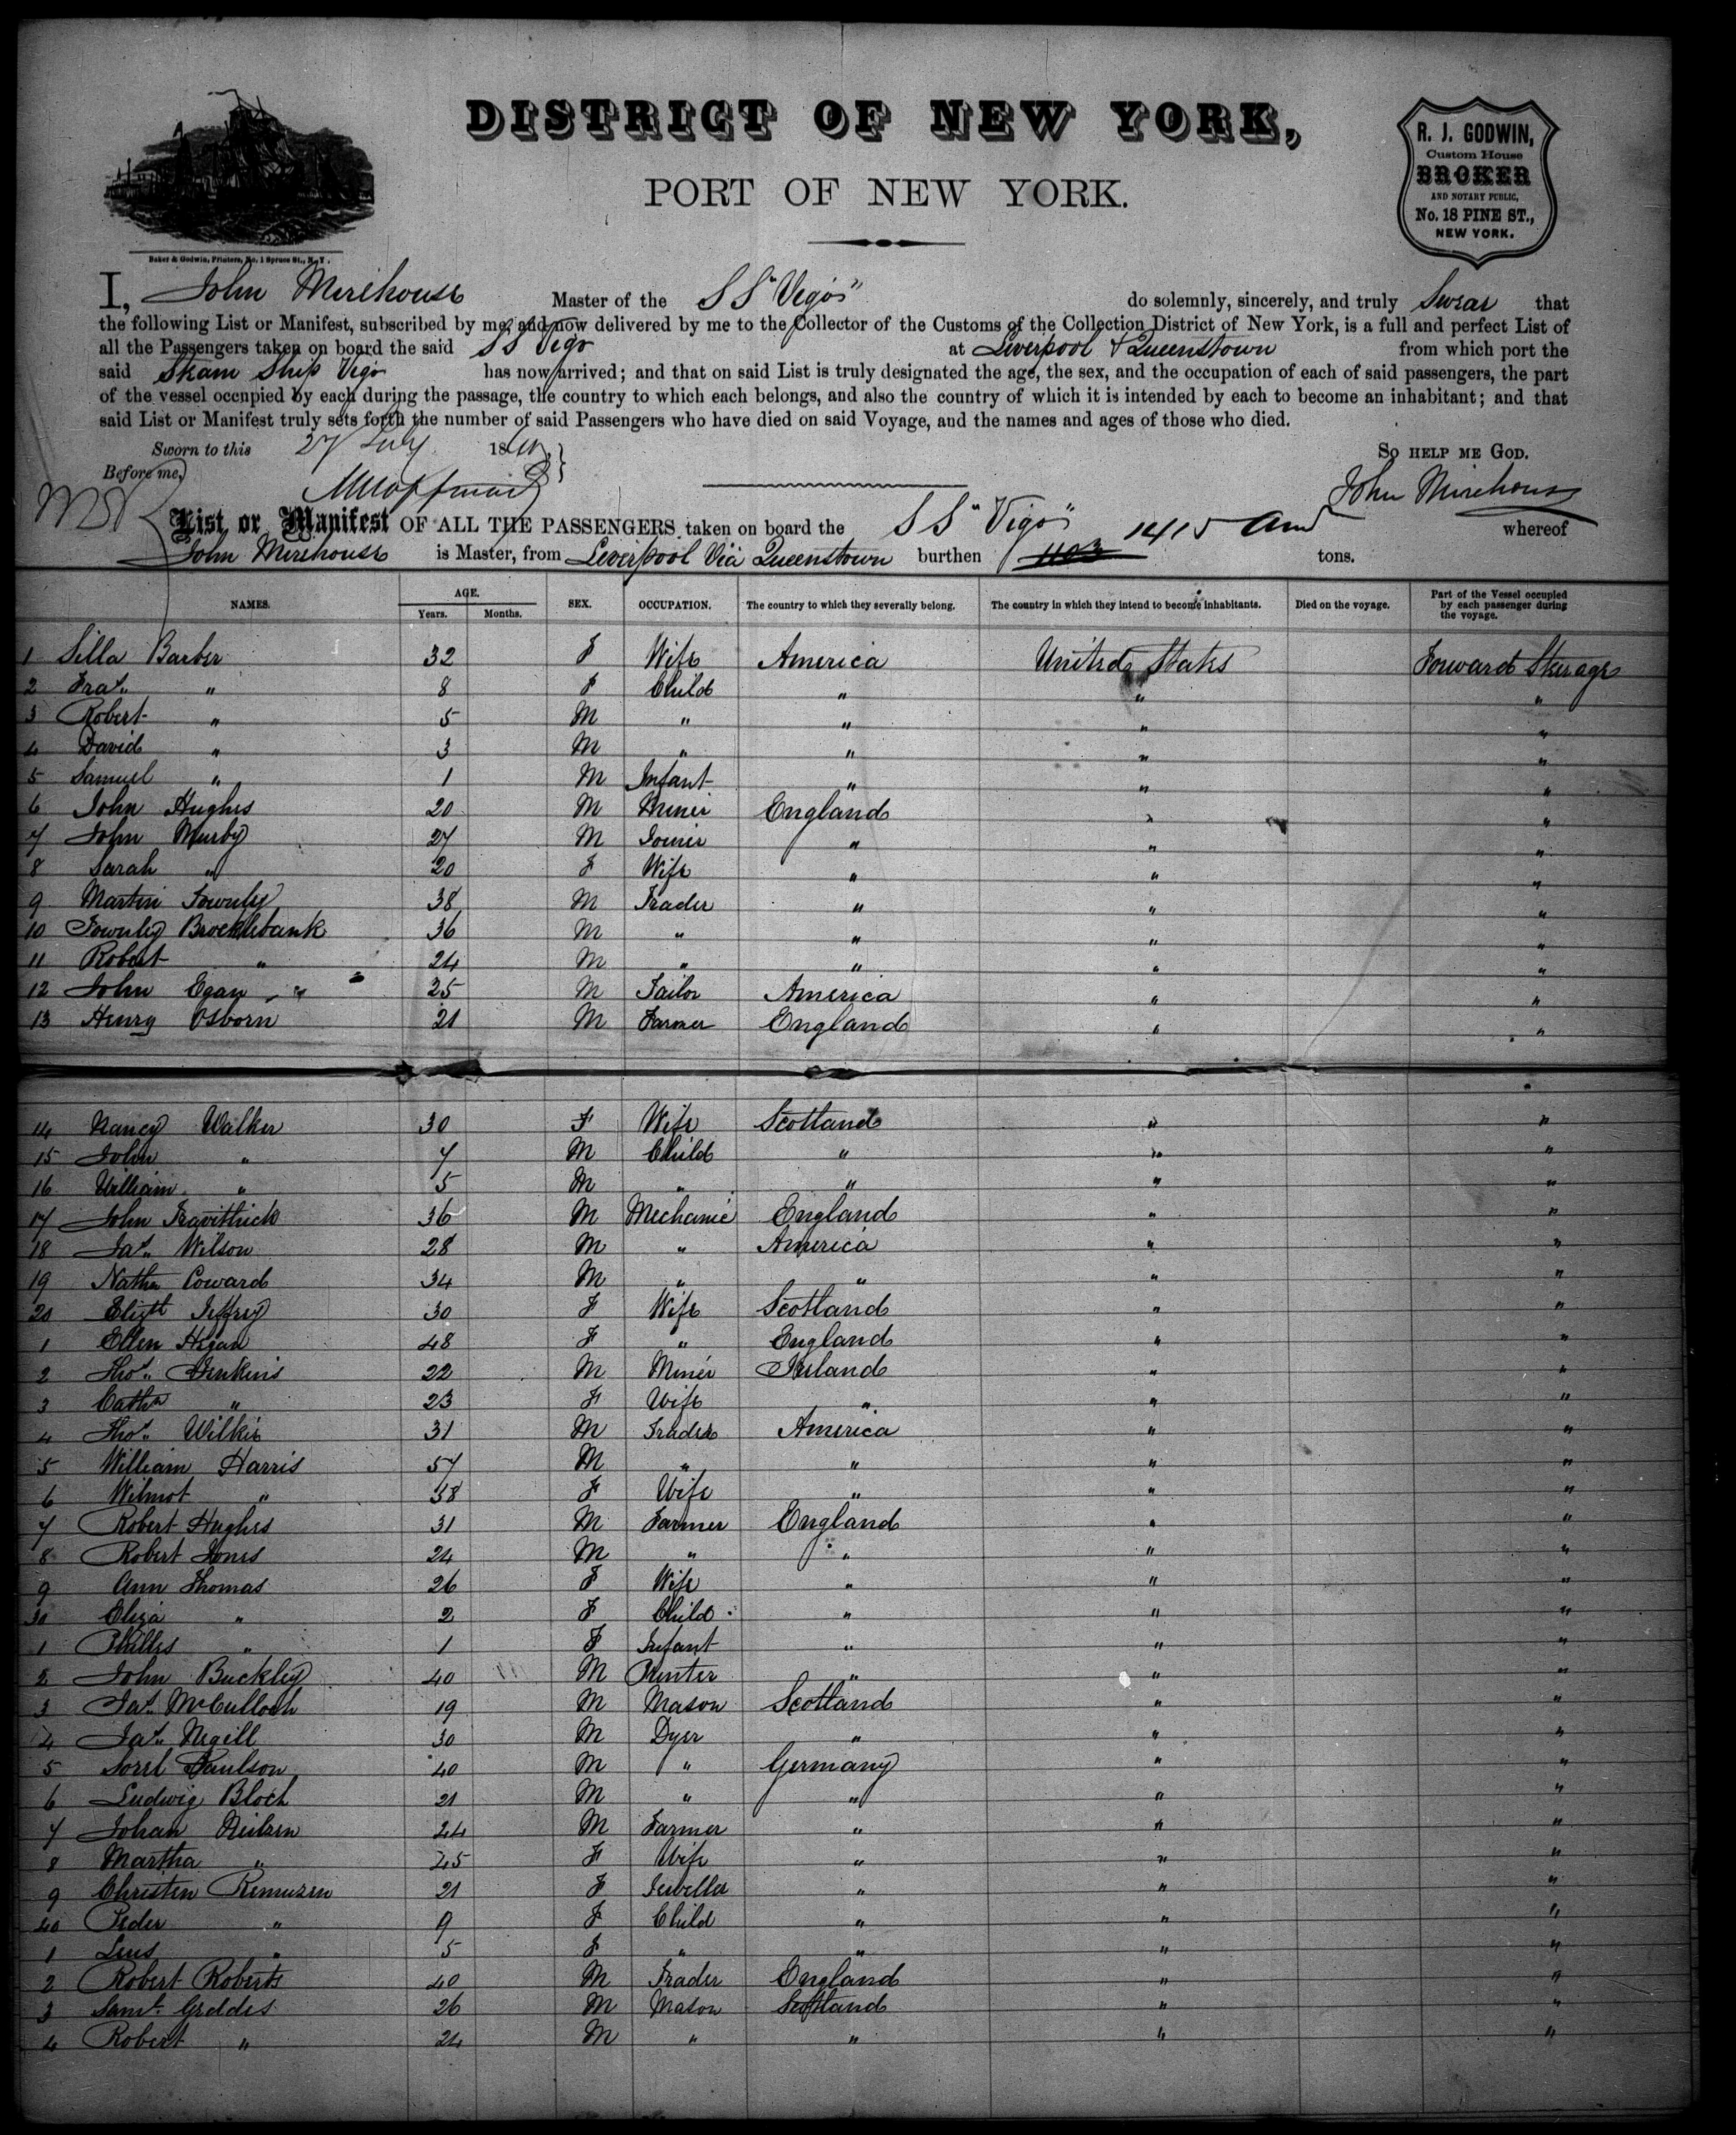 DISTRICT OF NEW YORK,
PORT OF NEW YORK.
R. J. GODWIN,
Custom House
BROKER
AND NOTARY PUBLIC,
No. 18 PINE ST.,
NEW YORK.
Baker & Godwin, Printers, No. 1 Spruce St., N. Y.
I, John Mirehouse Master of the SS "Vigo" do solemnly, sincerely, and truly Swear that
the following List or Manifest, subscribed by me, and now delivered by me to the Collector of the Customs of the Collection District of New York, is a full and perfect List of
all the Passengers taken on board the said SS Vigo at Liverpool & Queenstown from which port the
said Steam Ship Vigo has now arrived; and that on said List is truly designated the age, the sex, and the occupation of each of said passengers, the part
of the vessel occnpied by each during the passage, the country to which each belongs, and also the country of which it is intended by each to become an inhabitant; and that
said List or Manifest truly sets forth the number of said Passengers who have died on said Voyage, and the names and ages of those who died.
Sworn to this 27 July 18 So HELP ME GOD.
Before me, John Mirehouse
List or Manifest OF ALL THE PASSENGERS taken on board the SS "Vigo" 1415 whereof
John Mirehouse is Master, from Liverpool Via Queenstown burthen 1103 tons.
NAMES. AGE. Years. Months. SEX. OCCUPATION. The country to which they severally belong. The country in which they intend to become inhabitants. Died on the voyage. Part of the Vessel occupied by each passenger during the voyage.
1 Silla Barber 32 F Wife America United States Forward Steerage
2 Fras. " 8 F Child " " "
3 Robert " 5 M " " " "
4 David " 3 M " " " "
5 Samuel " 1 M Infant " " "
6 John Hughes 20 M Miner England " "
7 John Murby 27 M Joiner " " "
8 Sarah " 20 F Wife " " "
9 Martin Townley 38 M Trader " " "
10 Townley Brocklebank 36 M " " " "
11 Robert " 24 M " " " "
12 John Egan 25 M Tailor America " "
13 Henry Osborn 21 M Farmer England " "
14 Nancy Walker 30 F Wife Scotland " "
15 John " 7 M Child " " "
16 William " 5 M " " " "
17 John Travithick 36 M Mechanic England " "
18 Jas. Wilson 28 M " America " "
19 Nathn Coward 34 M " " " "
20 Elizth Jeffrey 30 F Wife Scotland " "
1 Ellen Higan 48 F " England " "
2 Thos. Jenkins 22 M Miner Ireland " "
3 Cathn " 23 F Wife " " "
4 Thos. Wilkie 31 M Trader America " "
5 William Harris 57 M " " " "
6 Wilmot " 38 F Wife " " "
7 Robert Hughes 31 M Farmer England " "
8 Robert Jones 24 M " " " "
9 Ann Thomas 26 F Wife " " "
30 Eliza " 2 F Child " " "
1 Phillis " 1 F Infant " " "
2 John Buckley 40 M Printer " " "
3 Jas. McCulloch 19 M Mason Scotland " "
4 Jas. Negill 30 M Dyer " " "
5 Sorel Paulson 40 M " Germany " "
6 Ludwig Bloch 21 M " " " "
7 Johan Neilzen 24 M Farmer " " "
8 Martha " 25 F Wife " " "
9 Christen Remuzen 21 F Jeweller " " "
40 Peder " 9 F Child " " "
1 Lens " 5 F " " " "
2 Robert Roberts 40 M Trader England " "
3 Saml. Geddes 26 M Mason Scotland " "
4 Robert " 24 M " " " "